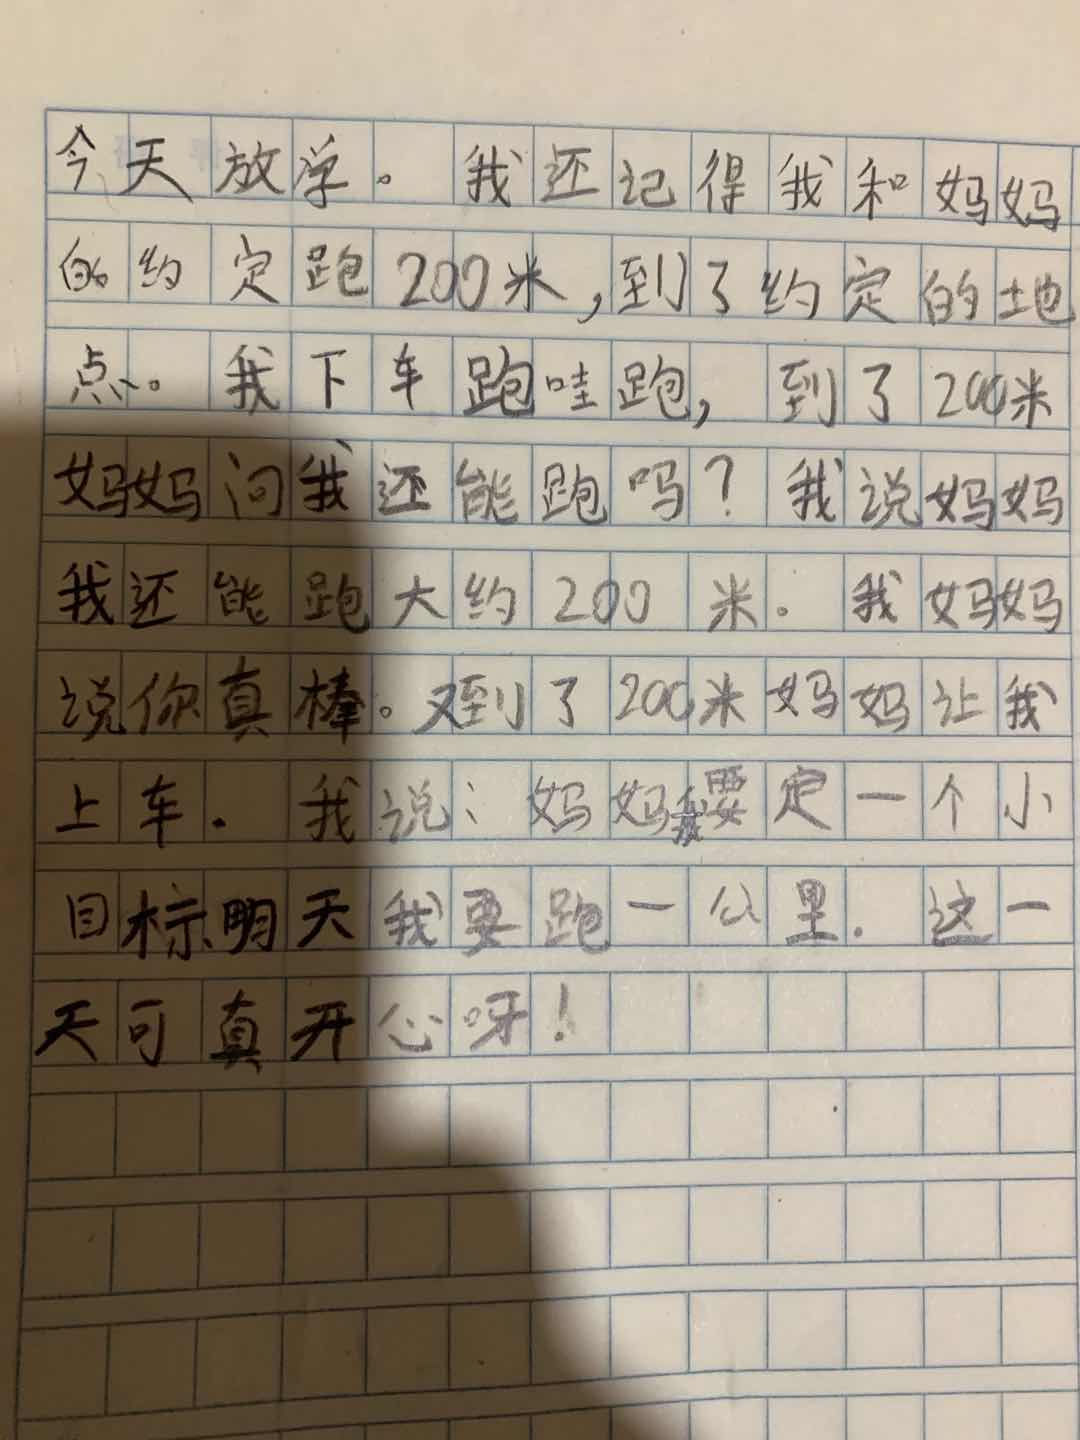 今天放学。我还记得我和妈妈
的约定跑200米,到了约定的地
点。我下车跑哇跑,到了200米
妈妈问我还能跑吗?我说妈妈
我还能跑大约200米.我妈妈
说你真棒。又到了200米妈妈让我
上车.我说:妈妈我要定一个小
目标明天我要跑一公里.这一
天可真开心呀!